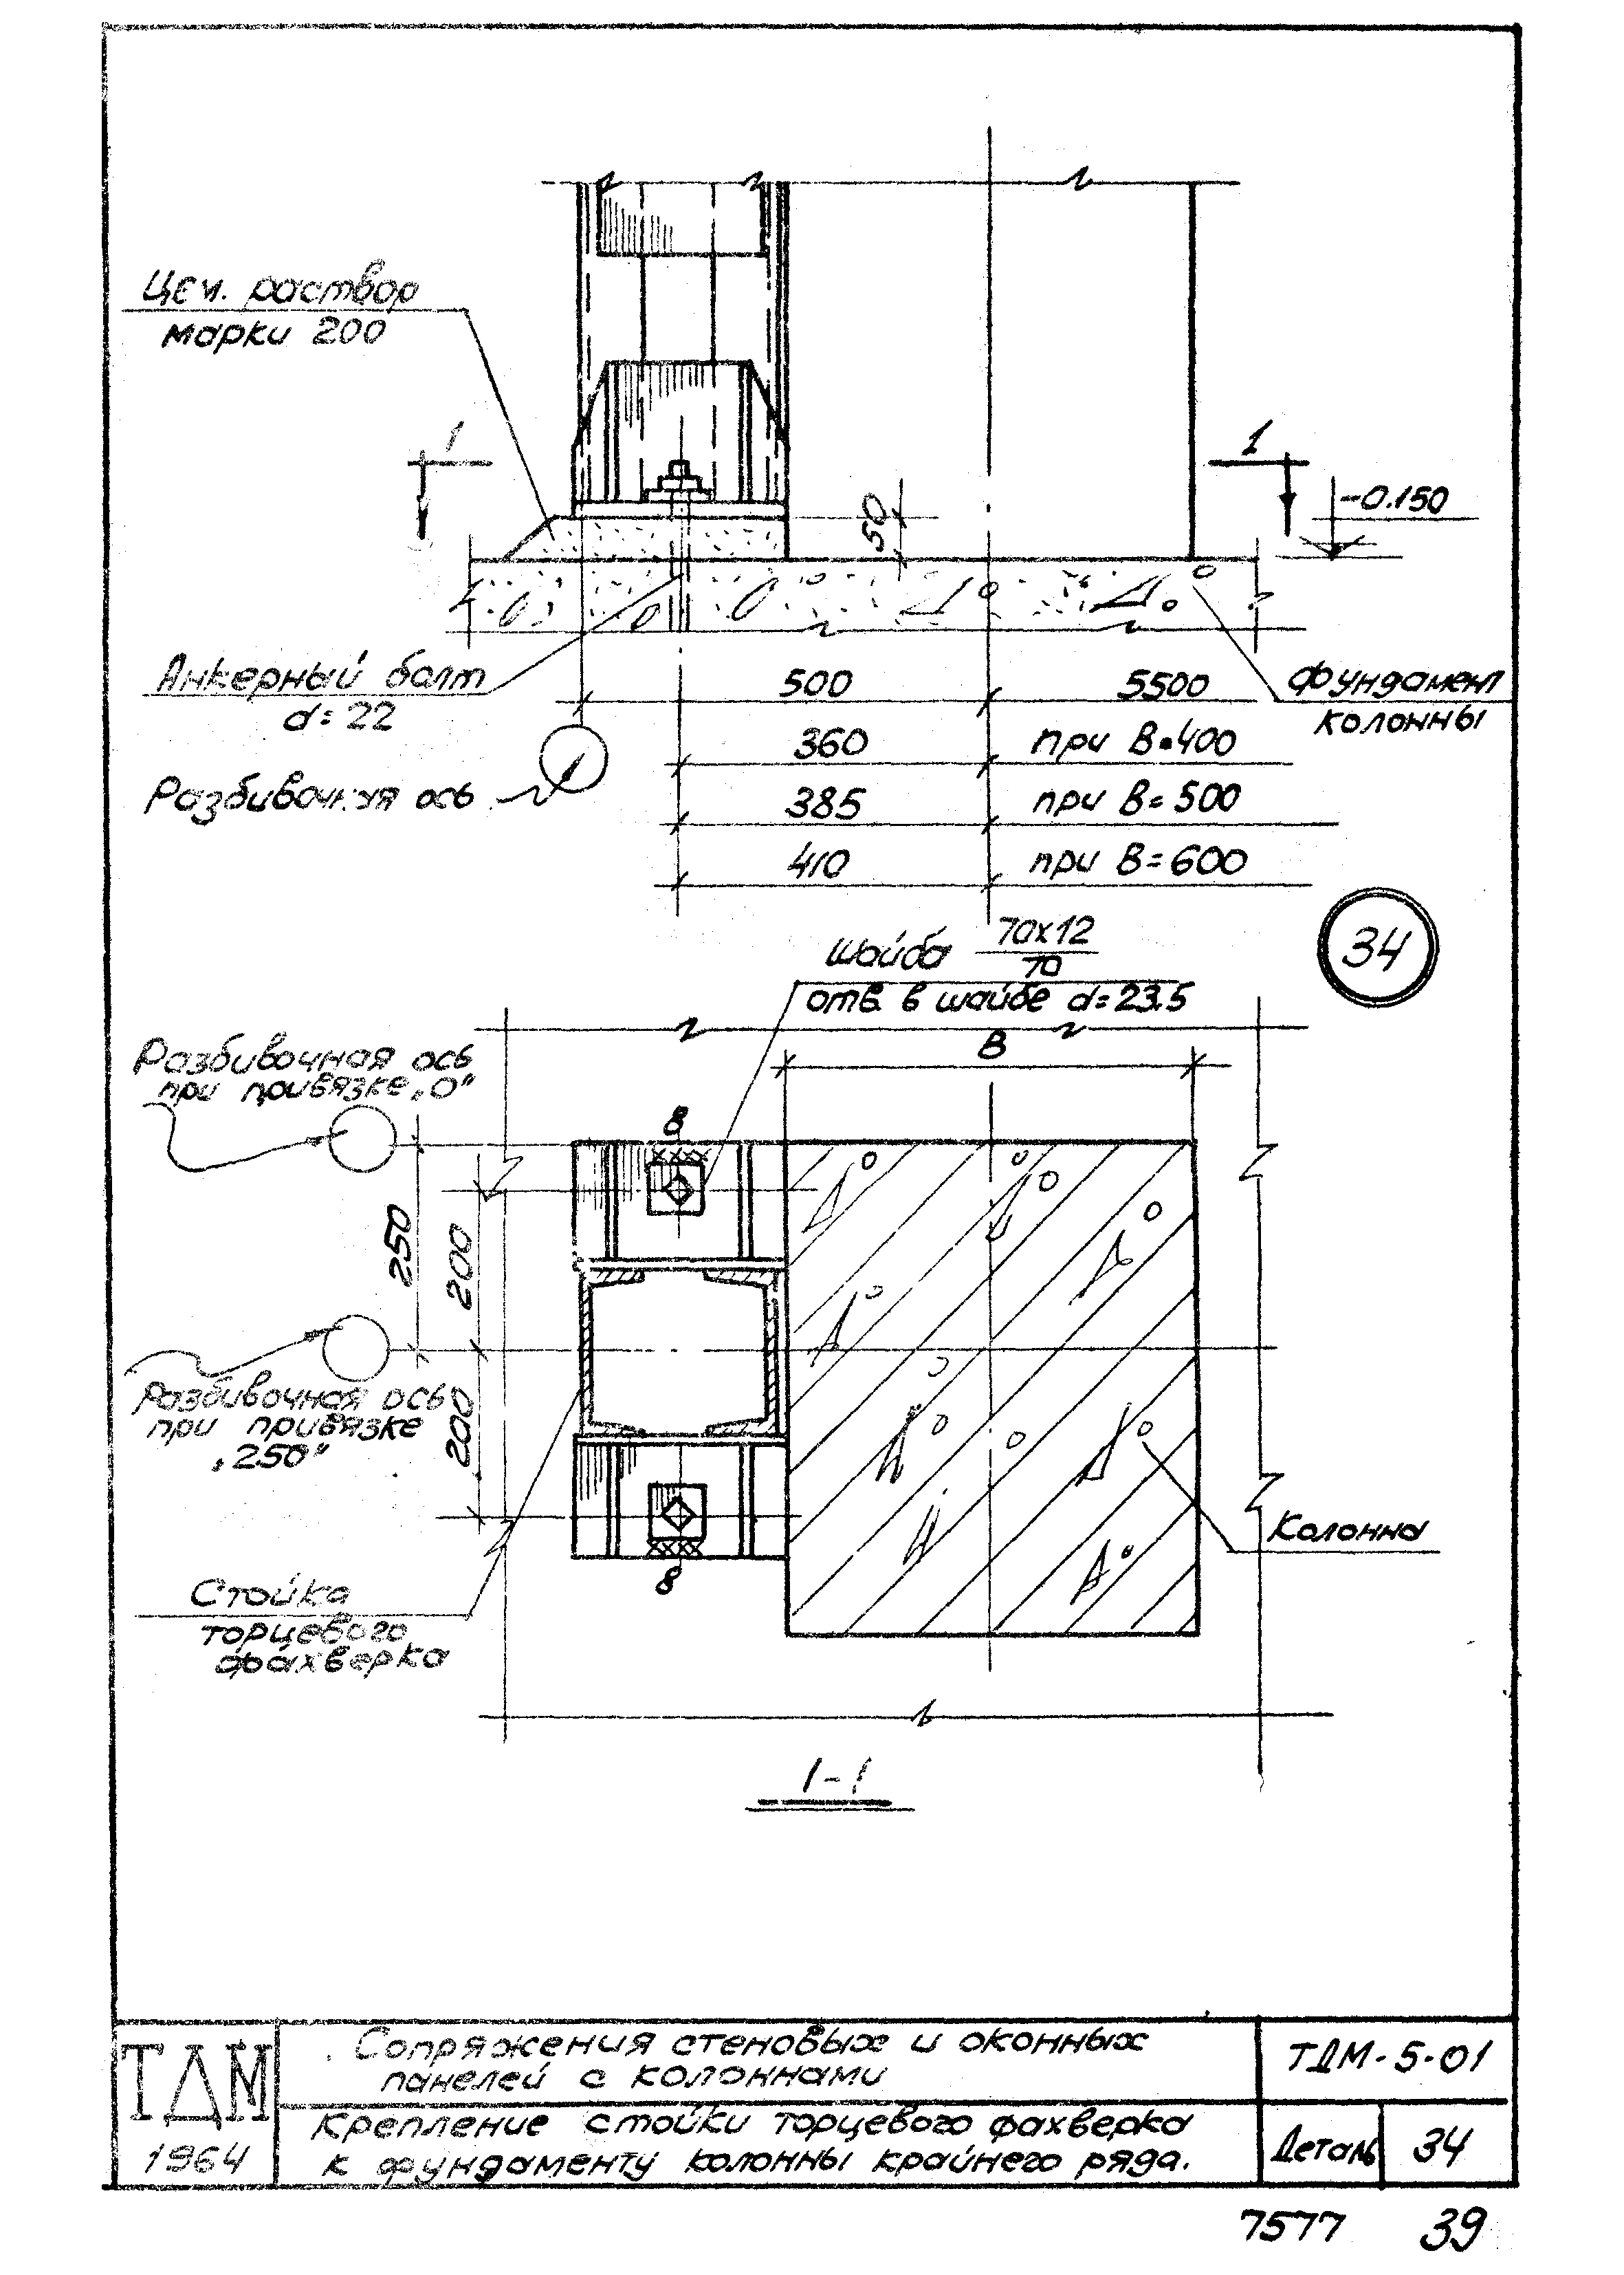 Цем. раствор
марки 200
1
1
-0.150
50
Анкерный болт
d=22
500
5500
фундамент
колонны
360
при В=400
Разбивочная ось
385
при В=500
410
при В=600
34
шайба 70х12
70
отв. в шайбе d=23.5
В
Разбивочная ось
при привязке „0"
8
250
200
Разбивочная ось
при привязке
„250"
200
Колонна
8
Стойка
торцевого
фахверка
1-1
ТДМ
1964
Сопряжения стеновых и оконных
панелей с колоннами
ТДМ-5-01
Крепление стойки торцевого фахверка
к фундаменту колонны крайнего ряда.
Деталь
34
7577
39